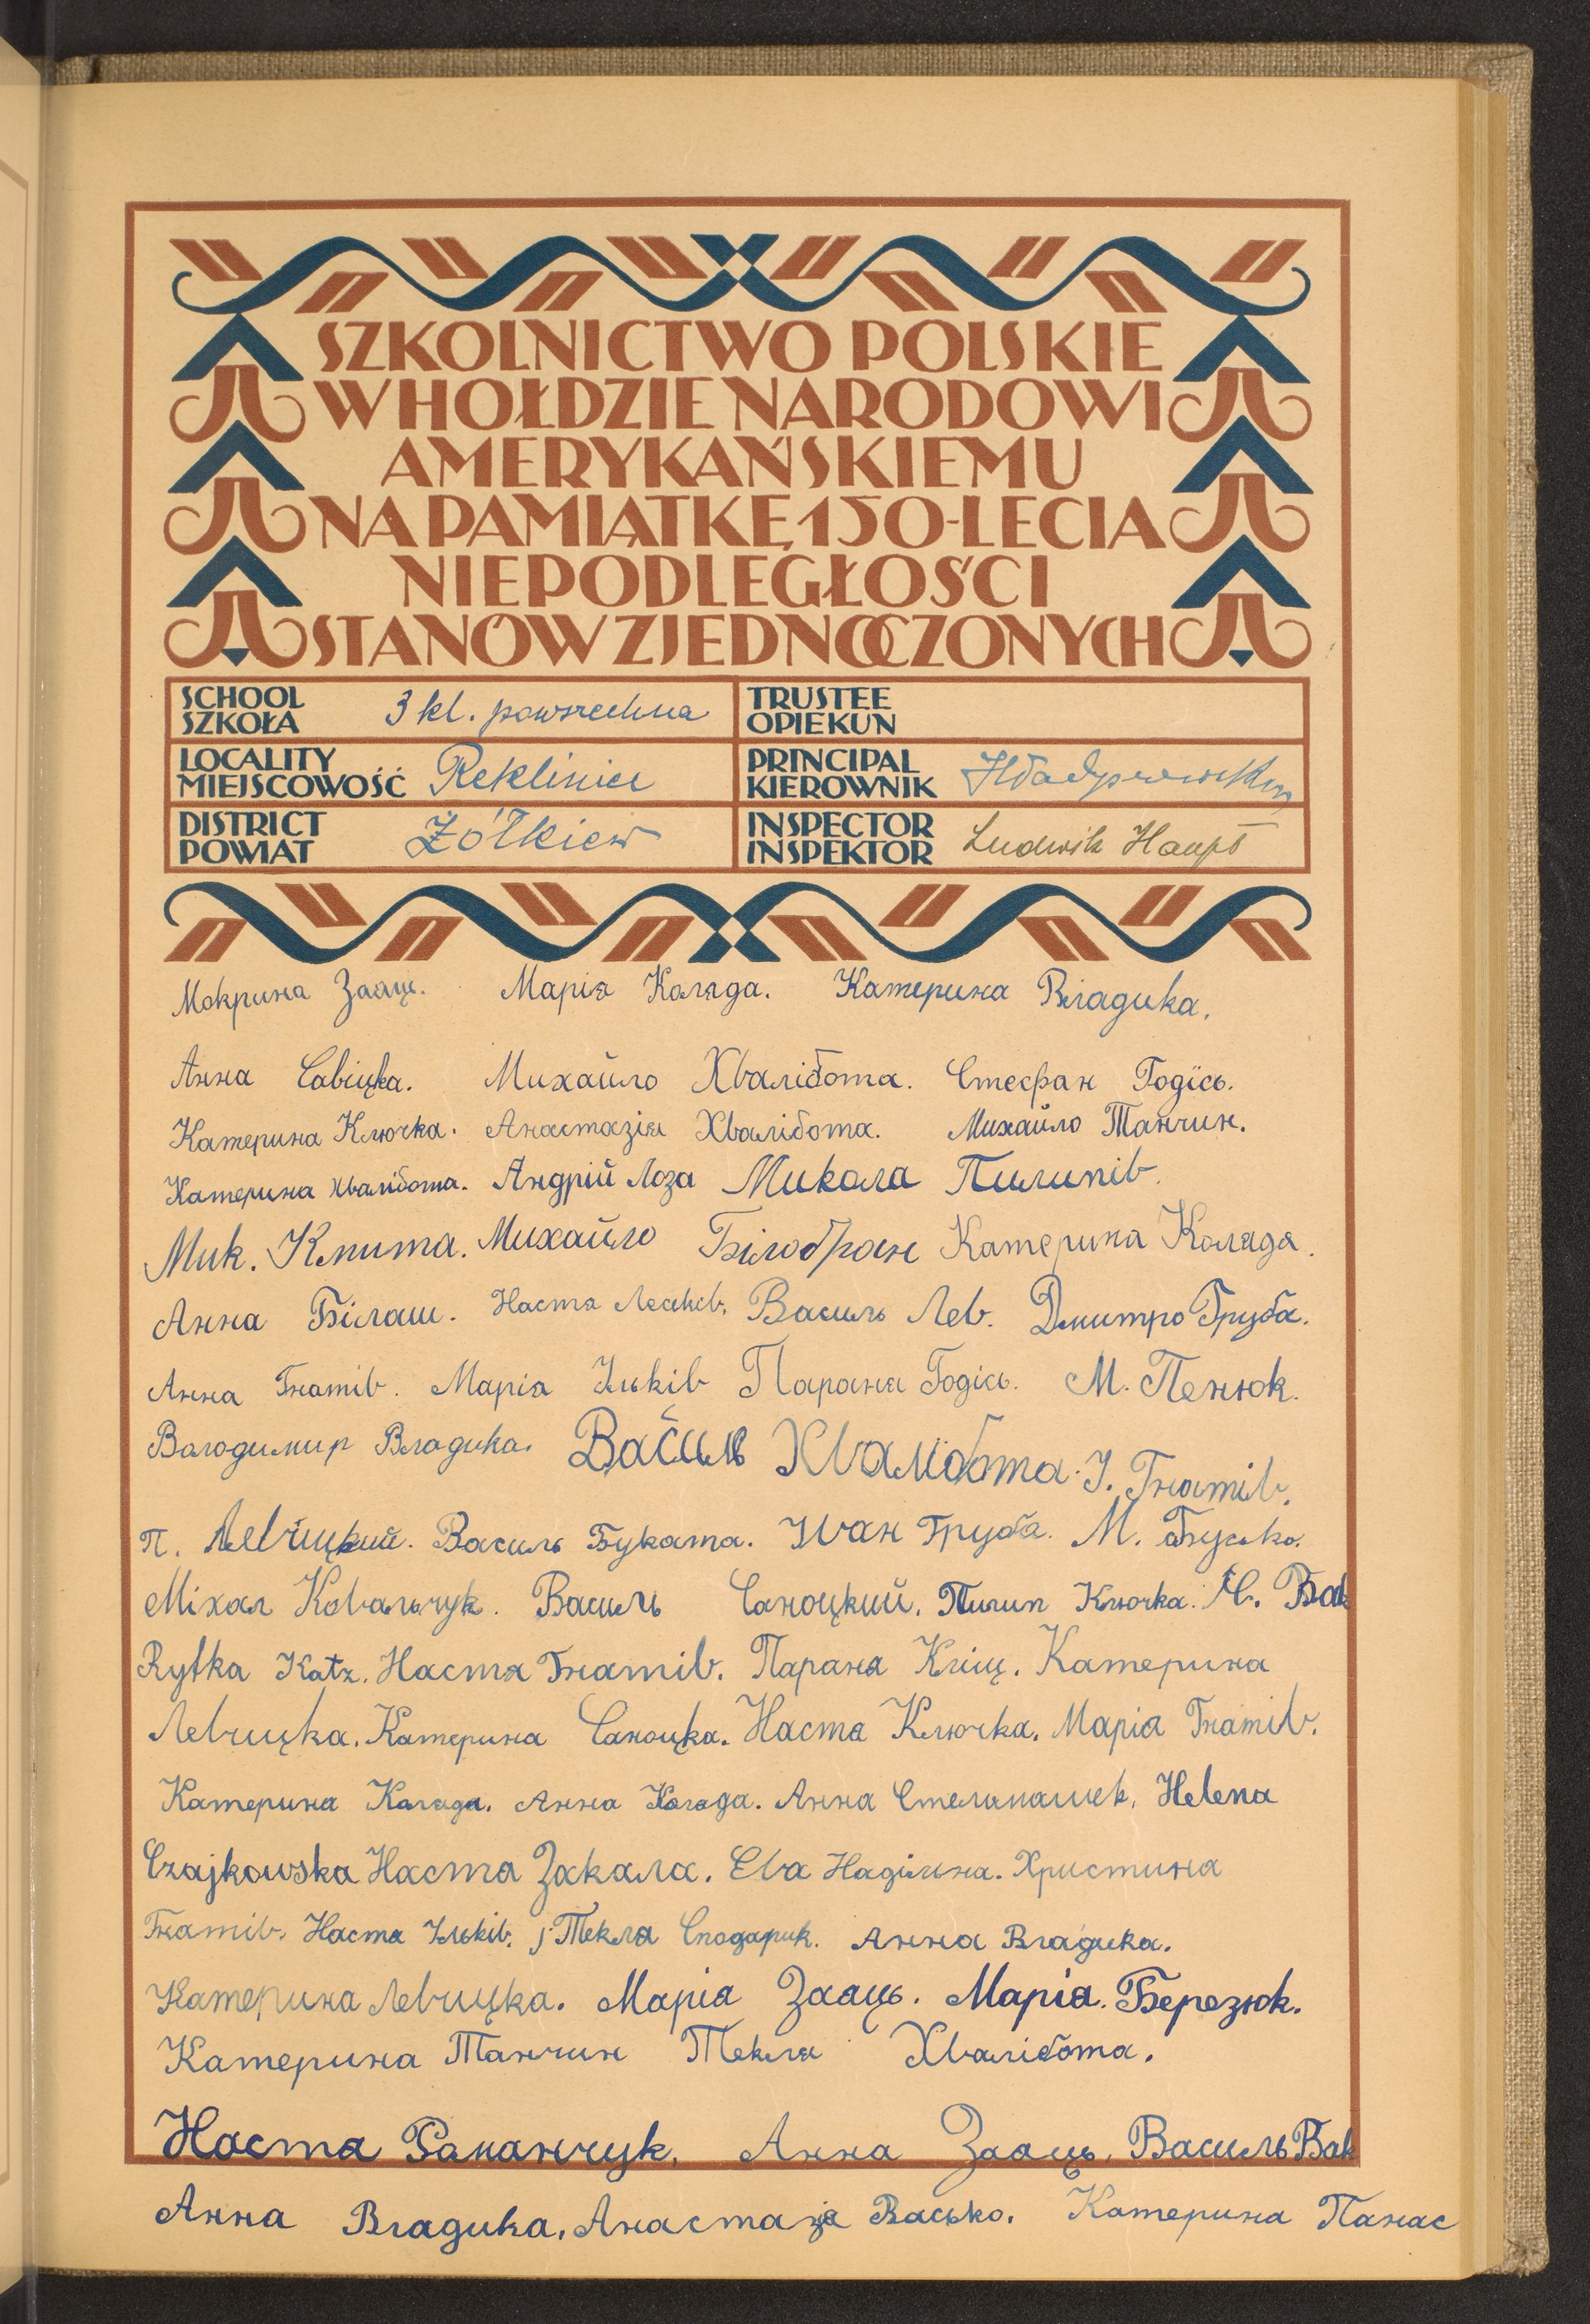 SZKOLNICTWO POLSKIE
W HOŁDZIE NARODOWI
AMERYKAŃSKIEMU
NA PAMIĄTKĘ 150-LECIA
NIEPODLEGŁOŚCI
STANÓW ZJEDNOCZONYCH
SCHOOL
SZKOŁA 3 kl. powszechna
TRUSTEE
OPIEKUN
LOCALITY
MIEJSCOWOŚĆ Rekliniec
PRINCIPAL
KIEROWNIK
DISTRICT
POWIAT Żółkiew
INSPECTOR
INSPEKTOR Ludwik Haupt
Мокрина Зааць. Маріа Каляда. Катерина Владика.
Анна Савіцка. Михайло Хвалібота. Стефан Годісь.
Катерина Ключка. Анастазія Хвалібота. Михайло Танчин.
Катерина Хвалібота. Андрій Лоза Микола Пилипів.
Мик. Кпита. Михайло Білобран Катерина Коляда.
Анна Білаш. Настя Василь Лев. Дмитро Груба.
Анна Гнатів. Маріа Ільків Парана Годісь. М. Пенюк.
Володимир Владика. Василь Хвалібота. І. Гнатів.
П. Левчицкий. Василь Буката. Іван Груба. М. Бусько.
Міхал Ковальчук. Василь Саноцкий. Пилип Ключка. Вак
Ryfka Katz. Настя Гнатів. Парана Кліщ. Катерина
Левчицка. Катерина Саноцка. Наста Ключка. Маріа Гнатів.
Катерина Каляда. Анна Коляда. Анна Helena
Czajkowska Наста Закала. Ева Надільна. Христина
Гнатів. Наста Ільків. Текля Сподарик. Анна Владика.
Катерина Левчицка. Маріа Зааць. Маріа. Березюк.
Катерина Танчин Текля Хвалібота.
Наста Романчук. Анна Зааць. Василь Вак
Анна Владика. Анастазіа Васько. Катерина Панас